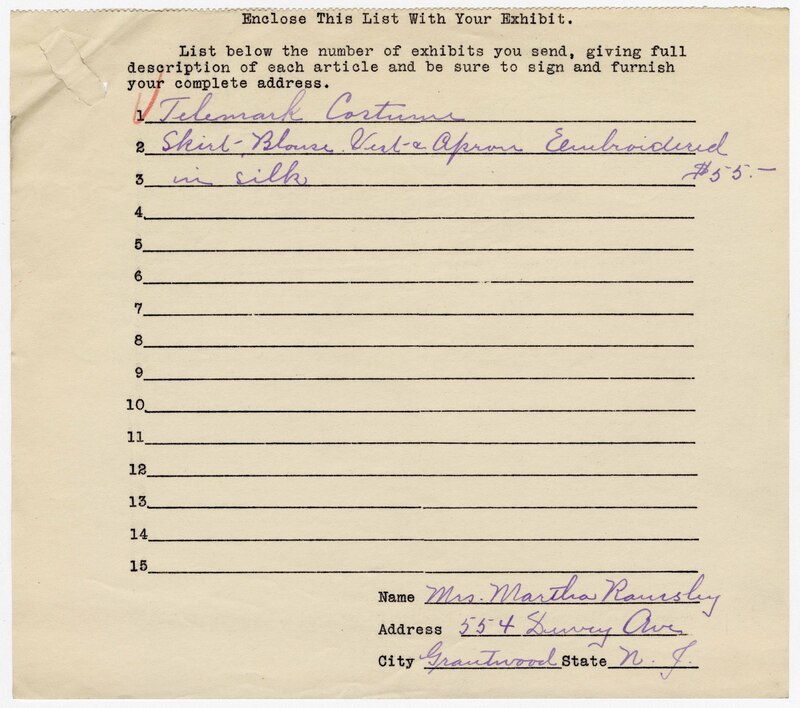 Enclose This List With Your Exhibit.
List below the number of exhibits you send, giving full
description of each article and be sure to sign and furnish
your complete address.
1 Telemark Costume
2 Skirt - Blouse Vest & Apron Embroidered
3 in silk $55.-
4
5
6
7
8
9
10
11
12
13
14
15
Name Mrs. Martha Ramsley
Address 554 Dewey Ave
City Grantwood State N. J.